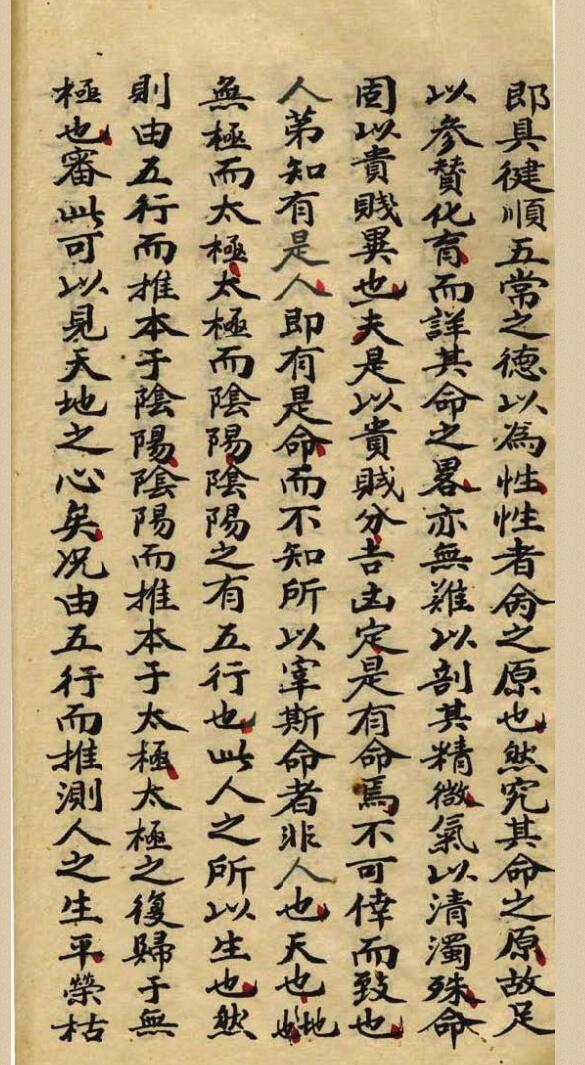 即具健順五常之德以為性性者命之原也然究其命之原故足
以参賛化育而詳其命之畧亦無難以剖其精微氣以清濁殊命
固以貴賤異也夫是以貴賤分吉凶定是有命焉不可倖而致也
人苐知有是人即有是命而不知所以宰斯命者非人也天也地也
無極而太極太極而陰陽陰陽之有五行也此人之所以生也然
則由五行而推本于陰陽陰陽而推本于太極太極之復歸于無
極也審此可以見天地之心矣况由五行而推測人之生平榮枯